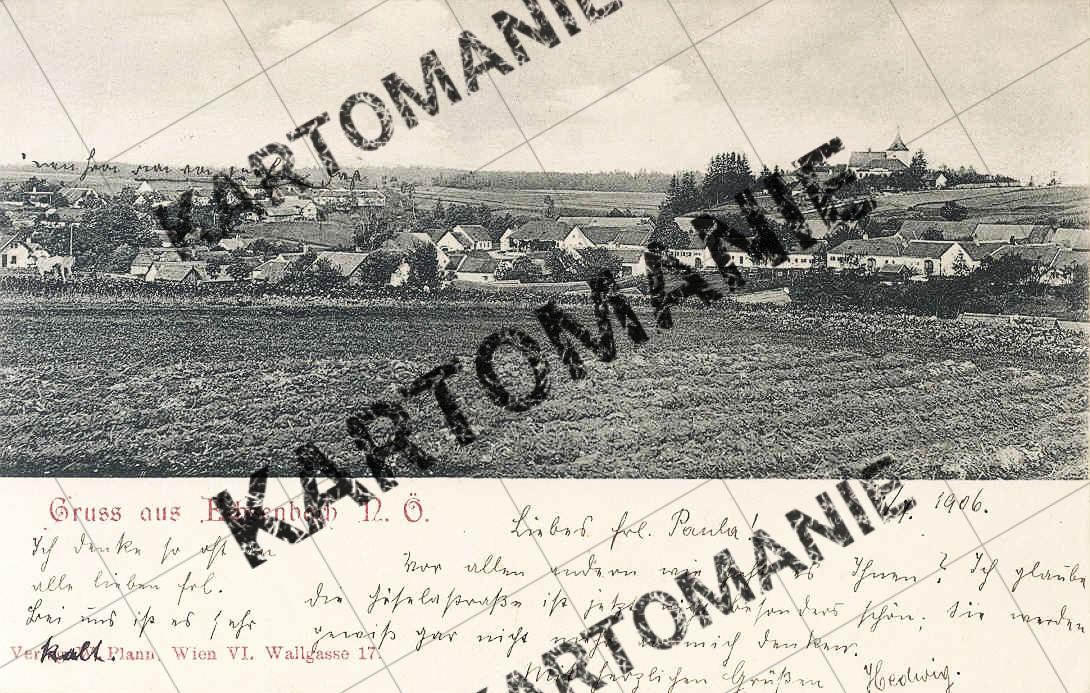 KARTOMANIE
KARTOMANIE
KARTOMANIE
Gruss aus N. Ö.
1906.
Liebes Frl. Paula!
Ich denke so oft an
Vor allen andern wie geht es Ihnen? Ich glaube
alle lieben Frl.
die Giselastraße ist jetzt besonders schön, Sie werden
Bei uns ist es sehr
gewiß gar nicht mehr an mich denken.
kalt.
Plann, Wien VI. Wallgasse 17.
Mit herzlichen Grüßen Hedwig.